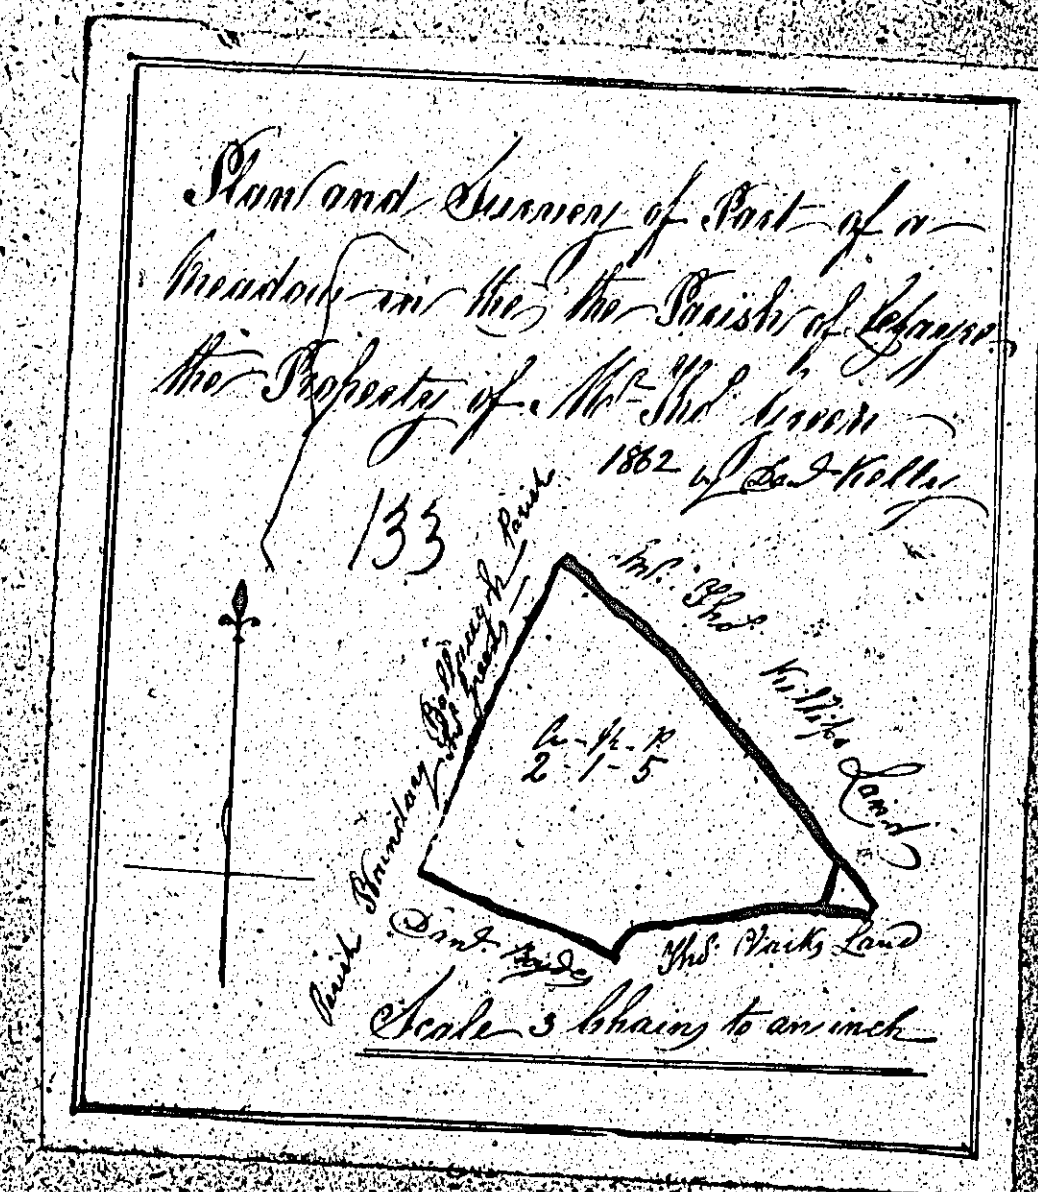 Plan and Survey of Part of a
Meadow in the the Parish of Lezayre
the Property of Mr. Thos. Green
1862 by Danl. Kelly
133
Parish Boundary Ballaugh Parish
Thos.
Mr. Thos. Killips Land
A - R - P
2 - 1 - 5
Danl.
Thos. Land
Scale 3 Chains to an inch